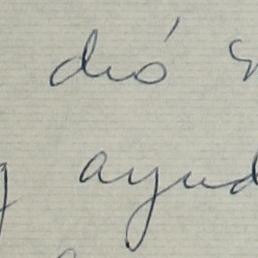 dió
ayud